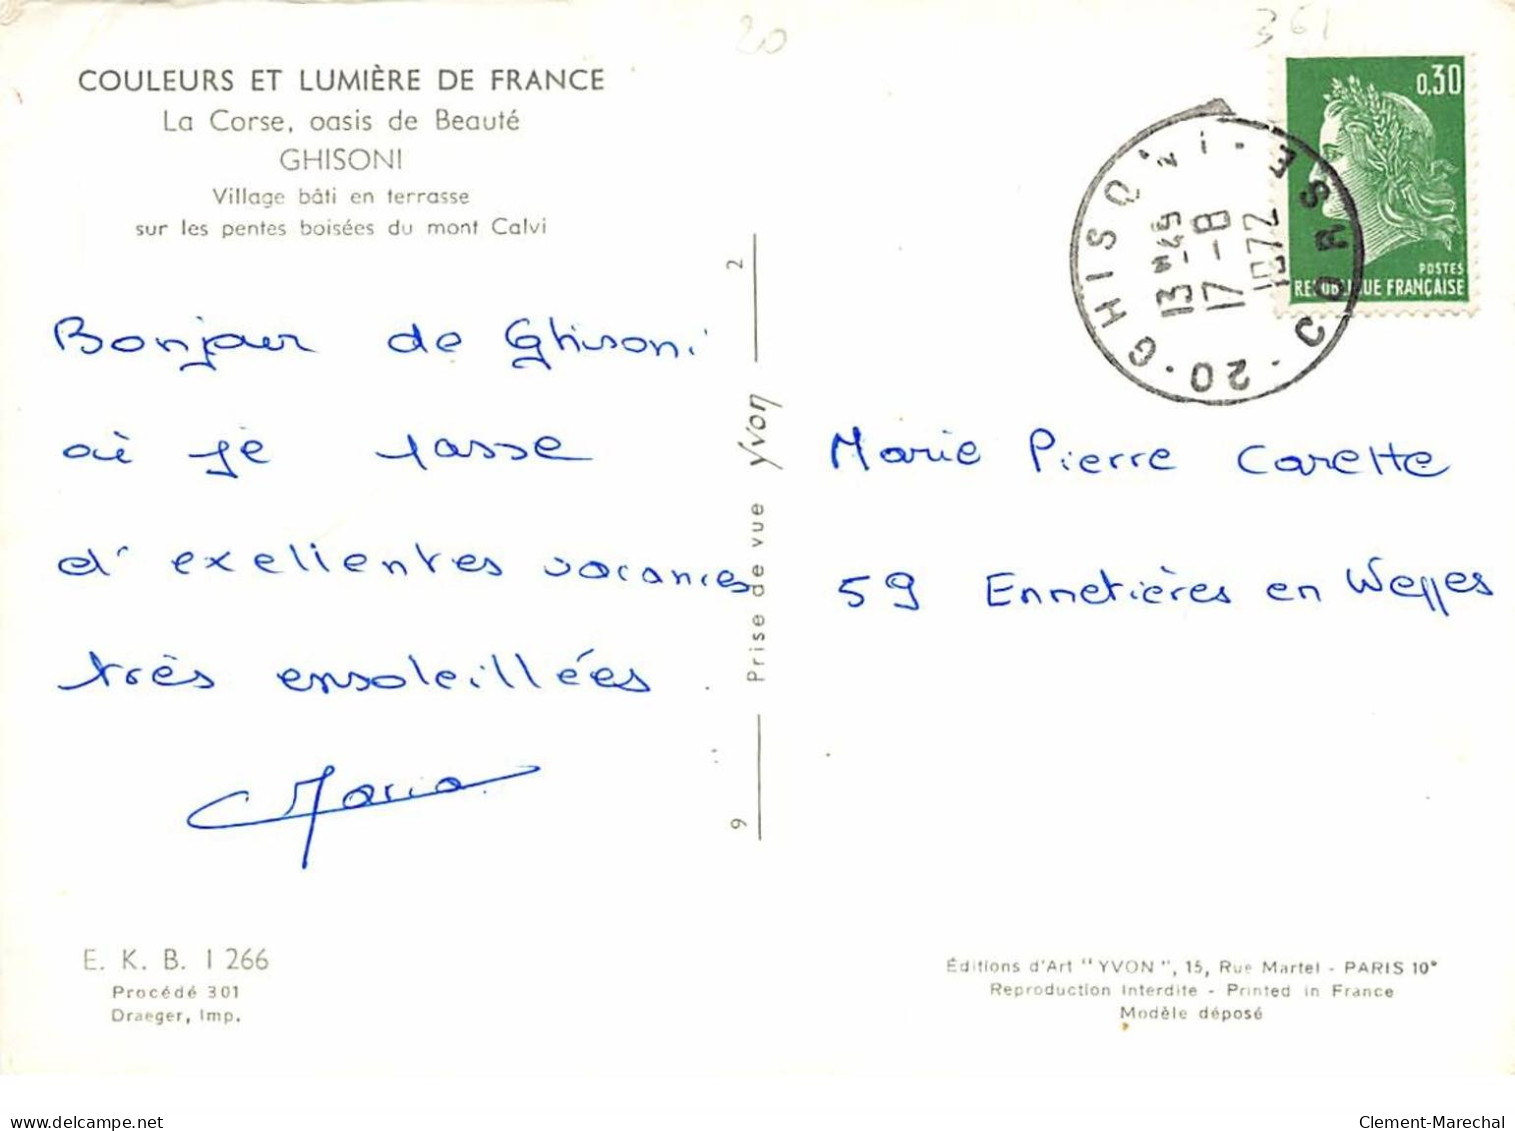 20
361
COULEURS ET LUMIÈRE DE FRANCE
La Corse, oasis de Beauté
GHISONI
Village bâti en terrasse
sur les pentes boisées du mont Calvi
0,30
POSTES
REPUBLIQUE FRANÇAISE
20 · GHISONI · CORSE
13H45
17-8
1972
Bonjour de Ghisoni
où je passe
d'exellentes vacances
très ensoleillées.
Maria
2
Prise de vue Yvon
9
Marie Pierre Carette
59 Ennetières en Weppes
E. K. B. I 266
Procédé 301
Draeger, Imp.
Éditions d'Art "YVON", 15, Rue Martel - PARIS 10e
Reproduction Interdite - Printed in France
Modèle déposé
delcampe.net
Clement-Marechal